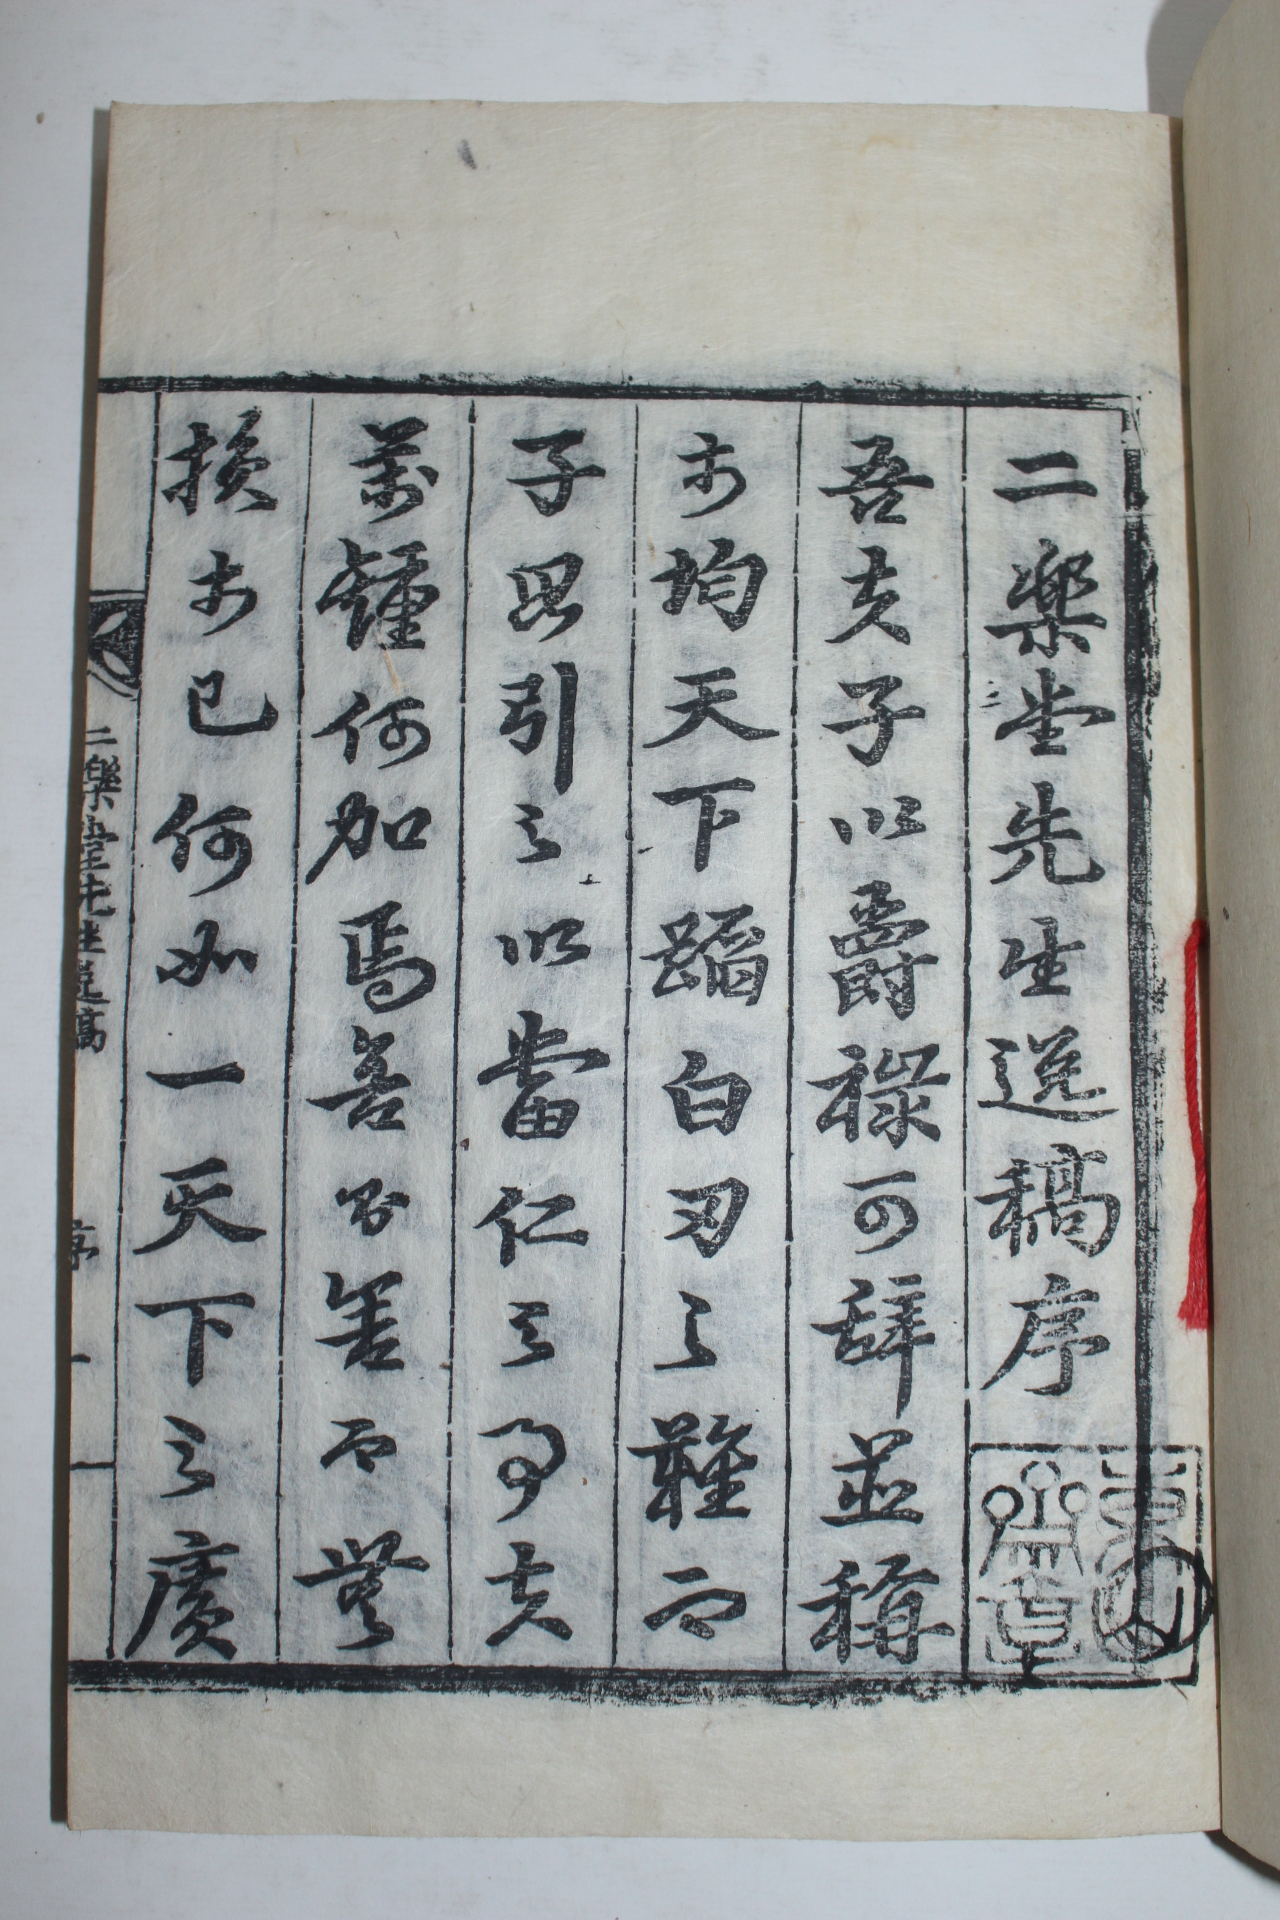 二樂堂先生逸稿序
吾夫子以爵祿可辭並稱
於均天下蹈白刃之難而
子思引之以當仁之事夫
萬鍾何加焉善不善而無
損於己何如一天下之廣
二樂堂先生逸稿
序
一